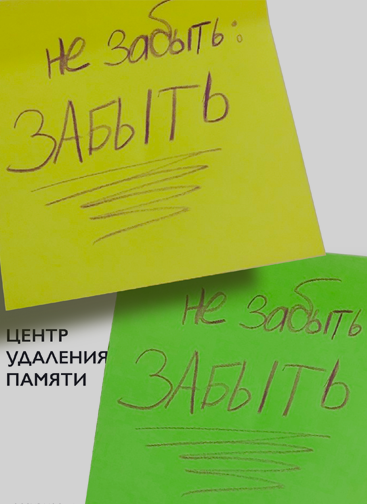 не забыть:
ЗАБЫТЬ
ЦЕНТР
УДАЛЕНИЯ
ПАМЯТИ
не забыть
ЗАБЫТЬ